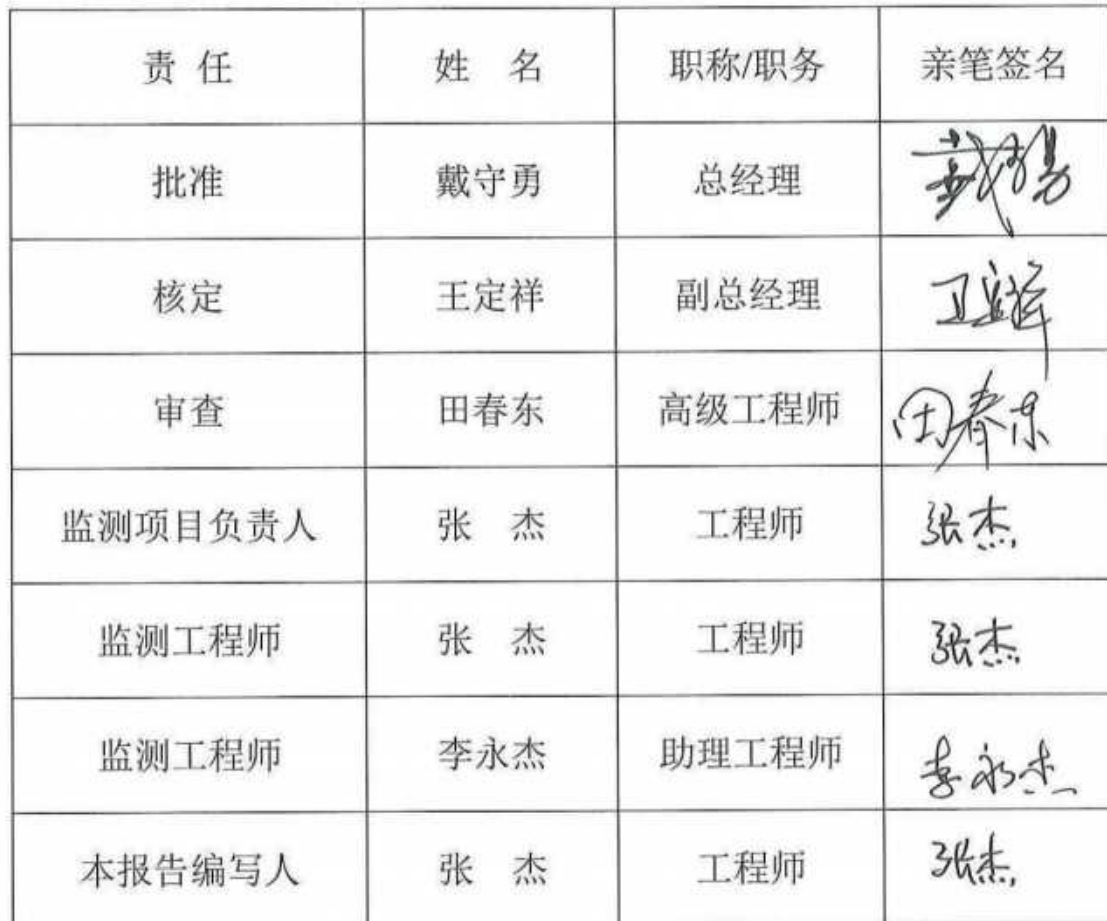 责 任 姓 名 职称/职务 亲笔签名
批准 戴守勇 总经理 戴守勇
核定 王定祥 副总经理 王定祥
审查 田春东 高级工程师 田春东
监测项目负责人 张 杰 工程师 张杰
监测工程师 张 杰 工程师 张杰
监测工程师 李永杰 助理工程师 李永杰
本报告编写人 张 杰 工程师 张杰